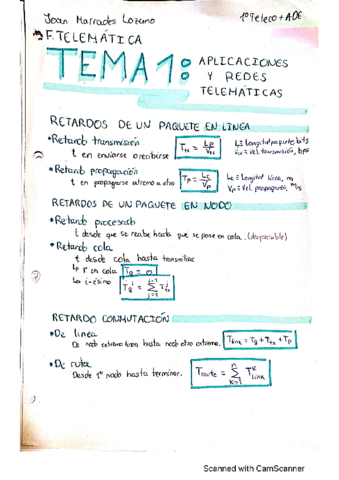 Joan Marrades Lozano 1º Teleco + ADE
F. TELEMÁTICA
TEMA 1: APLICACIONES
Y REDES
TELEMÁTICAS
RETARDOS DE UN PAQUETE EN LINEA
• Retardo transmisión
t en enviarse o recibirse
Ttx = Lp / Vtx
Lp = Longitud paquete, bits
Vtx = Vel. transmisión, bps
• Retardo propagación
t en propagarse extremo a otro
Tp = Lc / Vp
Lc = Longitud línea, m
Vp = Vel. propagación, m/s
RETARDOS DE UN PAQUETE EN NODO
• Retardo procesado
t desde que se recibe hasta que se pone en cola. (despreciable)
• Retardo cola
t desde cola hasta transmitirse
1º en cola TQ = 0
i-ésimo
RETARDO CONMUTACIÓN
• De linea
De nodo extremo linea hasta nodo otro extremo.
Tlink = TQ + Ttx + Tp
• De ruta
Desde 1º nodo hasta terminar.
Scanned with CamScanner